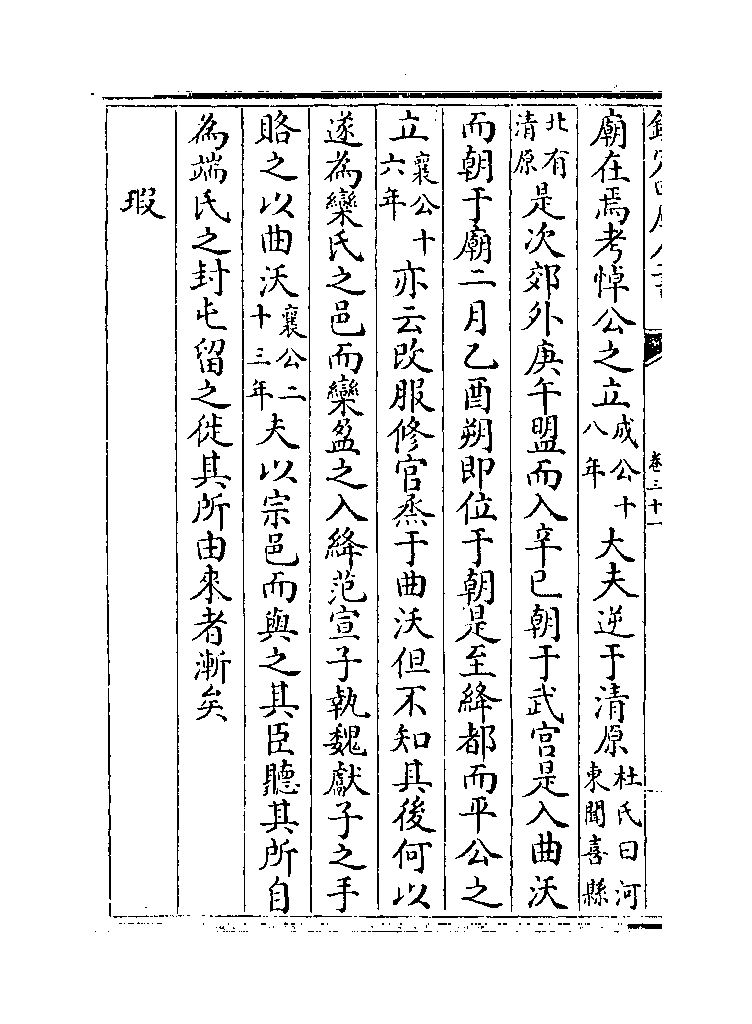 卷三十一
廟在焉考悼公之立成公十八年大夫逆于清原杜氏曰河東聞喜縣
北有清原是次郊外庚午盟而入辛巳朝于武宮是入曲沃
而朝于廟二月乙酉朔即位于朝是至絳都而平公之
立襄公十六年亦云改服修官烝于曲沃但不知其後何以
遂為欒氏之邑而欒盈之入絳范宣子執魏獻子之手
賂之以曲沃襄公二十三年夫以宗邑而與之其臣聽其所自
為端氏之封屯留之徙其所由來者漸矣
瑕